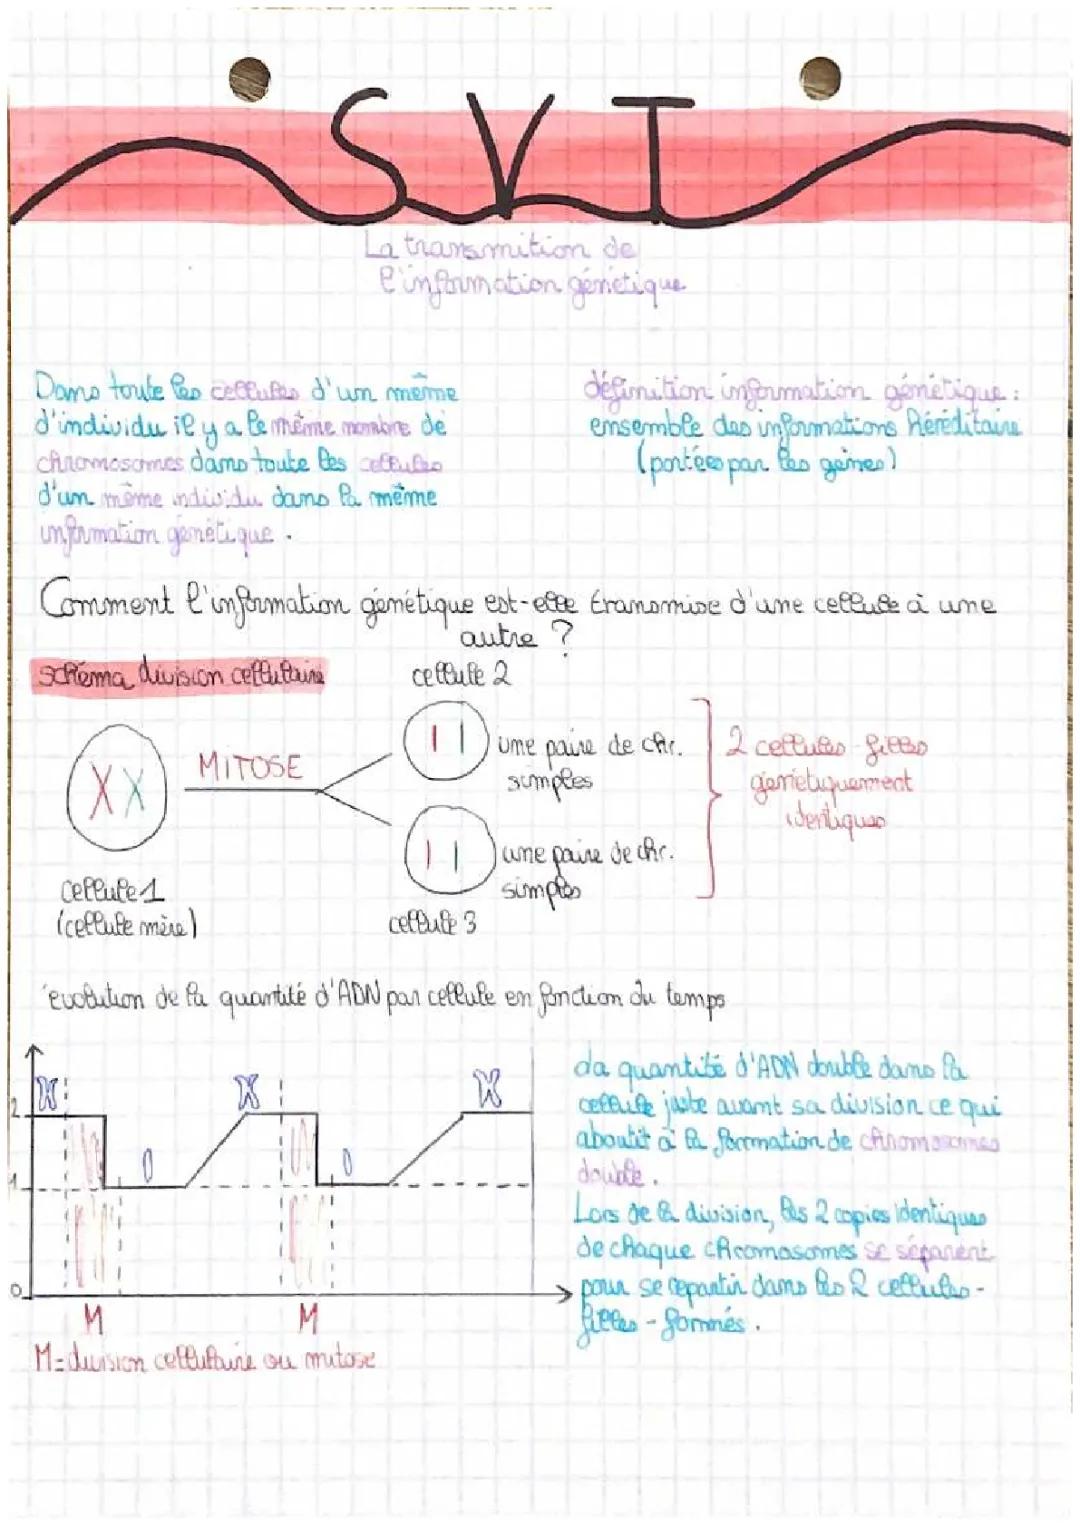 SVT
La transmition de
l'information génétique
Dans toute les cellules d'un même
d'individu il y a le même nombre de
chromosomes dans toute les cellules
d'un même individu dans la même
information génétique.
définition information génétique :
ensemble des informations héréditaire
(portées par les gènes)
Comment l'information génétique est-elle transmise d'une cellule à une
autre ?
schéma division cellulaire
cellule 2
MITOSE
une paire de chr.
simples
2 cellules-filles
génétiquement
identiques
une paire de chr.
simples
cellule 1
(cellule mère)
cellule 3
évolution de la quantité d'ADN par cellule en fonction du temps
2
1
0
M
M
M=division cellulaire ou mitose
La quantité d'ADN double dans la
cellule juste avant sa division ce qui
aboutit à la formation de chromosomes
double.
Lors de la division, les 2 copies identiques
de chaque chromosomes se séparent
pour se repartir dans les 2 cellules-
filles-formés.